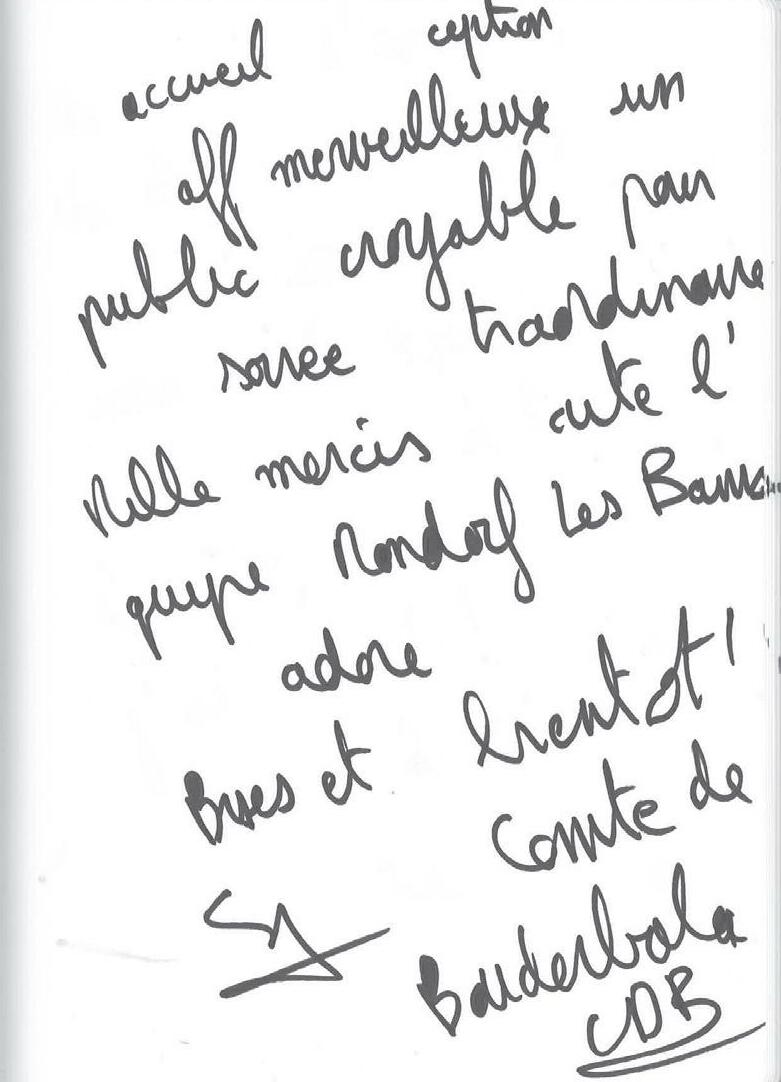 accueil ception
off merveilleux un
public croyable pour
soiree traordinaire
Mille mercis cute l'
quipe Mondorf Les Bains
adore
Bises et bientot !
Comte de
Bouderbala
CDB